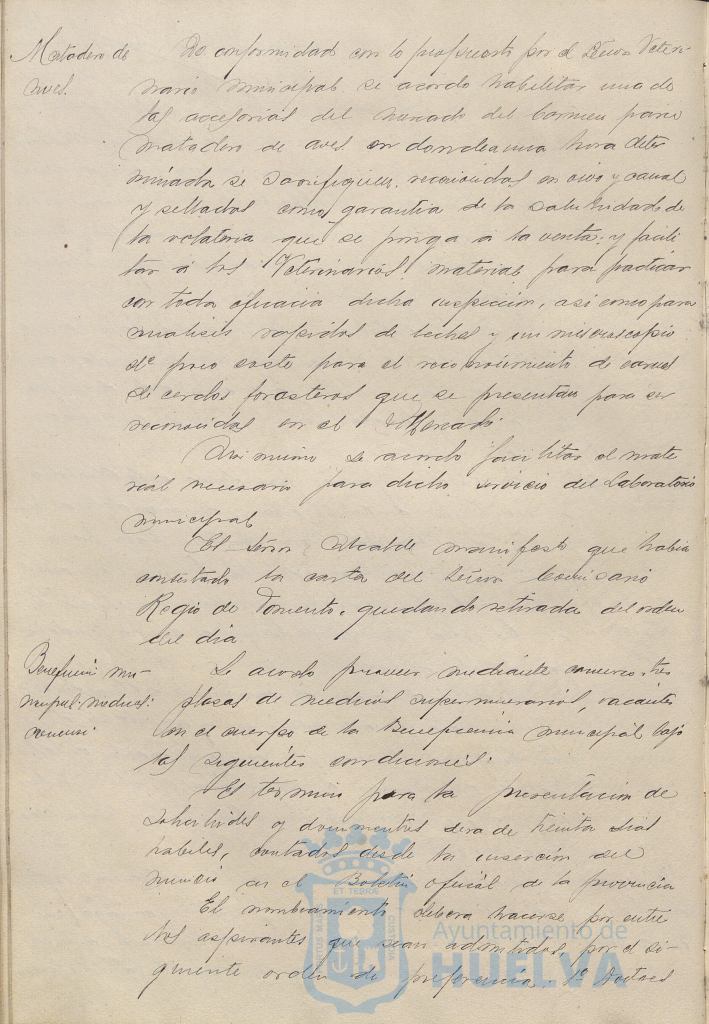 Matadero de
aves.
De conformidad con lo propuesto por el Señor Veteri-
nario municipal se acordo habilitar una de
las accesorias del mercado del Carmen para
matadero de aves en donde a una hora deter
minada se sacrifiquen, reconocidas en vivo y canal
y selladas como garantia de la salubridad de
la volateria que se ponga a la venta; y facili
tar á los Veterinarios, material para practicar
con toda eficacia dicha inspeccion, asi como para
analisis rapidos de leches y un microscopio
de poco coste para el reconocimiento de carnes
de cerdos forasteros que se presentan para ser
reconocidas en el Mercado.
Asi mismo se acordo facilitar el mate
rial necesario para dicho servicio del Laboratorio
municipal
El Señor Alcalde manifesto que habia
contestado la carta del Señor Comisario
Regio de Fomento, quedando retirada del orden
del dia
Beneficencia mu-
nicipal: medicos:
concurso
Se acordo proveer mediante concurso tres
plazas de medicos supernumerarios, vacantes
en el cuerpo de la Beneficencia municipal bajo
las siguientes condiciones:
El termino para la presentacion de
solicitudes y documentos sera de treinta dias
habiles, contados desde la insercion del
anuncio en el Boletin oficial de la provincia
El nombramiento debera hacerse por entre
los aspirantes que sean admitidos por el si-
guiente orden de preferencia. 1º
Ayuntamiento de
HUELVA